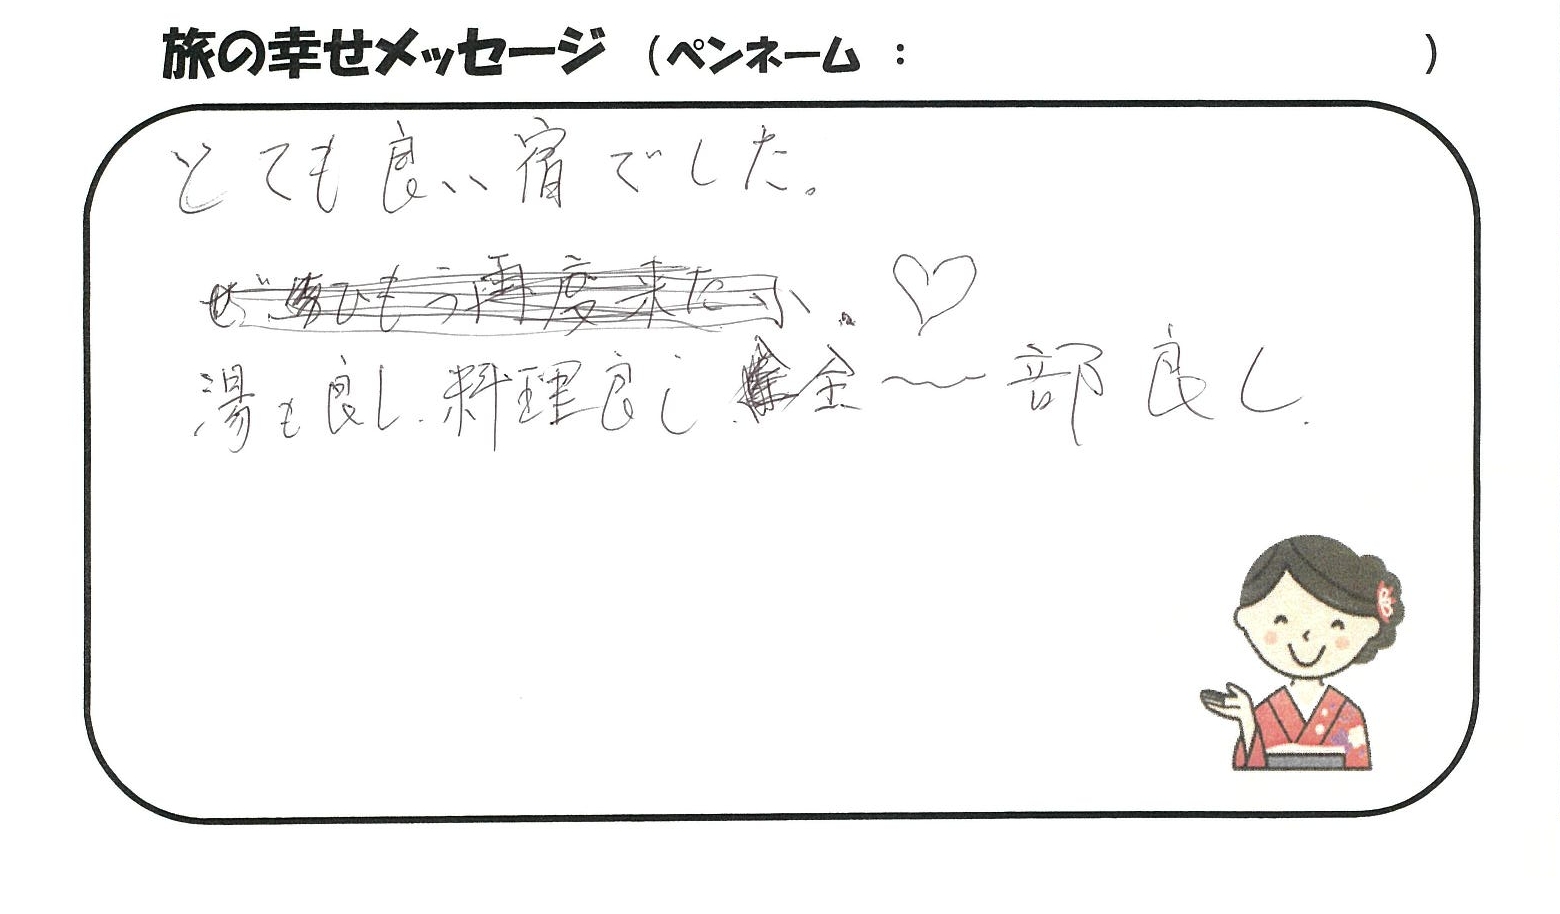 旅の幸せメッセージ (ペンネーム : )
とても良い宿でした。
ぜひもう再度来たい。♡
湯も良し.料理良し.全〜部良し.